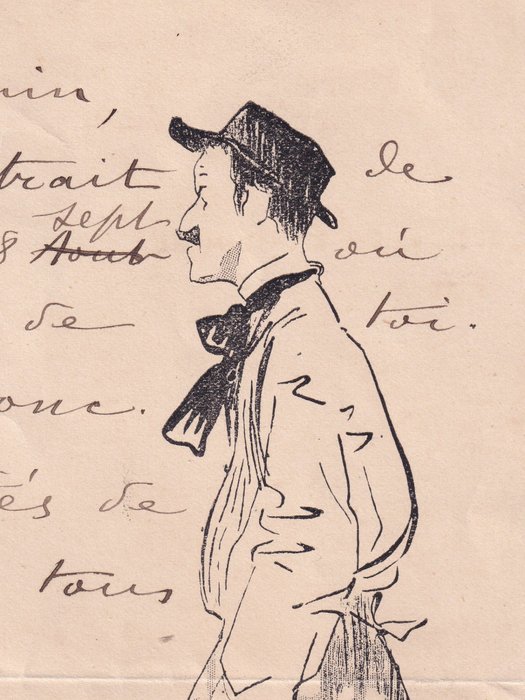 trait de
sept
8 Août où
de toi.
onc.
tés de
tous